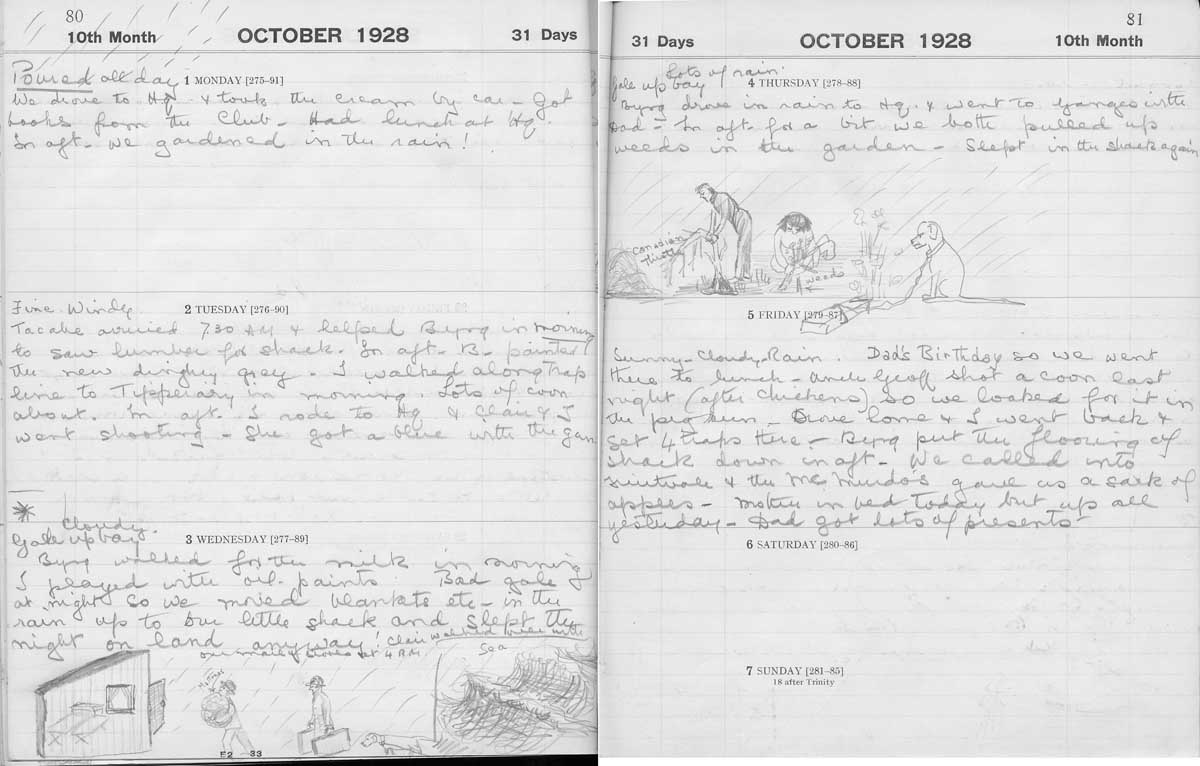 80
10th Month
OCTOBER 1928
31 Days
Poured all day
1 MONDAY [275-91]
We drove to Hq & took the cream by car - Got
books from the Club - Had lunch at Hq.
In aft - we gardened in the rain!
Fine Windy
2 TUESDAY [276-90]
arrived 7 30 AM & helped Byng in morning
to saw lumber for shack. In aft - B - painted
the new dinghy grey - I walked along trap
line to Tipperary in morning. Lots of coon
about. In aft. I rode to Hq & Clair & I
went shooting - She got a blue with the gun
*
Cloudy.
Gale up bay.
3 WEDNESDAY [277-89]
Byng walked for the milk in morning
I played with oil paints. Bad gale
at night so we moved blankets etc - in the
rain up to our little shack and slept the
night on land anyway! Clair walked over with
our at 4 P.M.
Sea
F2 33
81
31 Days
OCTOBER 1928
10th Month
Lots of rain.
gale up bay
4 THURSDAY [278-88]
Byng drove in rain to Hq & went to with
Dad - In aft. for a bit we both pulled up
weeds in the garden - Slept in the shack again
Canadian
weeds
5 FRIDAY [279-87]
Sunny - Cloudy, Rain Dad's Birthday so we went
there to lunch - shot a coon last
night (after chickens) so we looked for it in
the
set 4 traps there - Byng put the floor of
shack down in aft - We called into
& the sack of
apples - in bed but up all
yesterday - Dad got lots of presents
6 SATURDAY [280-86]
7 SUNDAY [281-85]
18 after Trinity